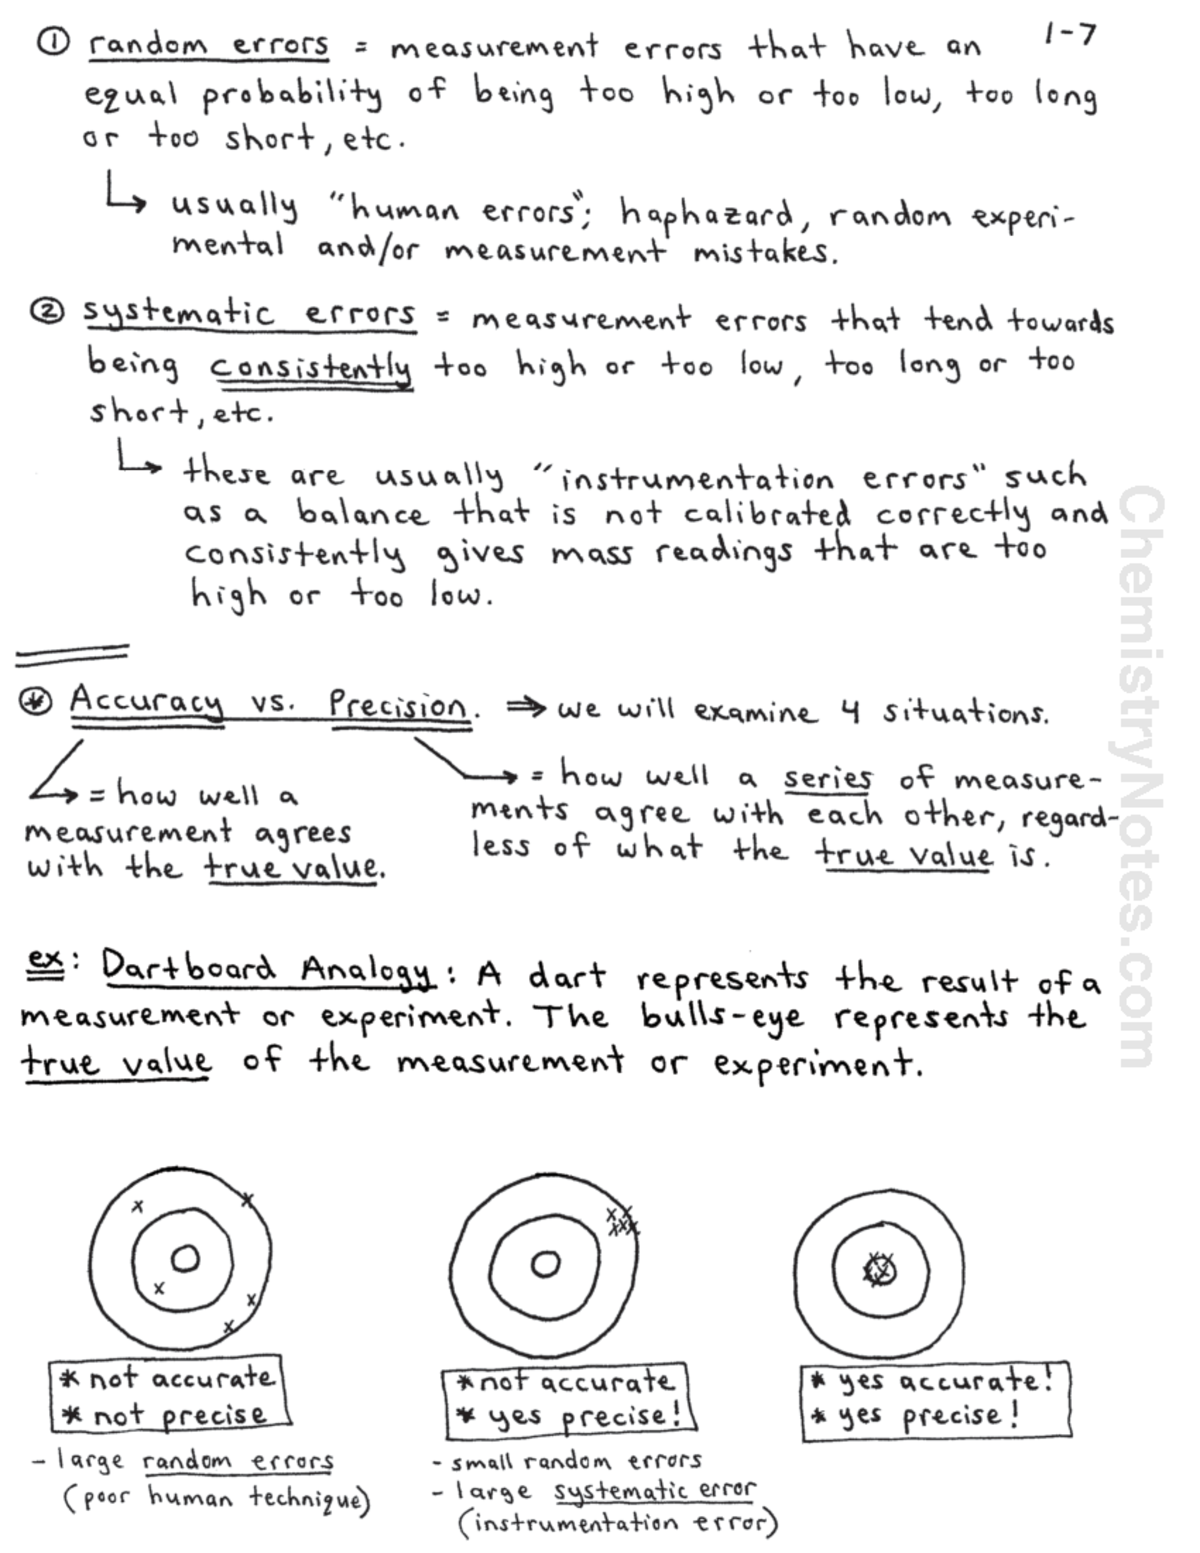 1-7
① random errors = measurement errors that have an
equal probability of being too high or too low, too long
or too short, etc.
↳ usually "human errors"; haphazard, random experi-
mental and/or measurement mistakes.
② systematic errors = measurement errors that tend towards
being consistently too high or too low, too long or too
short, etc.
↳ these are usually "instrumentation errors" such
as a balance that is not calibrated correctly and
consistently gives mass readings that are too
high or too low.
⊛ Accuracy vs. Precision. ⇒ we will examine 4 situations.
→ = how well a
measurement agrees
with the true value.
→ = how well a series of measure-
ments agree with each other, regard-
less of what the true value is.
ex: Dartboard Analogy: A dart represents the result of a
measurement or experiment. The bulls-eye represents the
true value of the measurement or experiment.
* not accurate
* not precise
- large random errors
(poor human technique)
* not accurate
* yes precise!
- small random errors
- large systematic error
(instrumentation error)
* yes accurate!
* yes precise!
ChemistryNotes.com